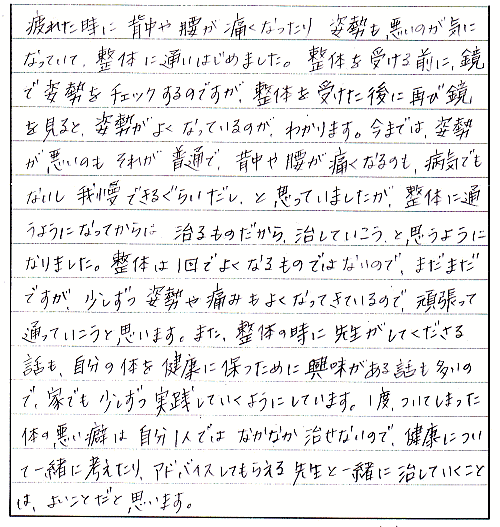 疲れた時に 背中や腰が 痛くなったり 姿勢も悪いのが気に
なっていて、整体に通いはじめました。整体を受ける前に、鏡
で姿勢をチェックするのですが、整体を受けた後に再び鏡
を見ると、姿勢がよくなっているのが、わかります。今までは、姿勢
が悪いのも それが 普通で、背中や腰が痛くなるのも、病気でも
ないし 我慢できるぐらいだし、と思っていましたが、整体に通
うようになってからは 治るものだから、治していこう、と思うように
なりました。整体は1回でよくなるものではないので、まだまだ
ですが、少しずつ 姿勢や痛みもよくなってきているので、頑張って
通っていこうと思います。また、整体の時に先生がしてくださる
話も、自分の体を健康に保つために興味がある話も多いの
で、家でも少しずつ実践していくようにしています。1度、ついてしまった
体の悪い癖は自分1人では なかなか 治せないので、健康につい
て一緒に考えたり、アドバイスしてもらえる先生と一緒に治していくこと
は、よいことだと思います。